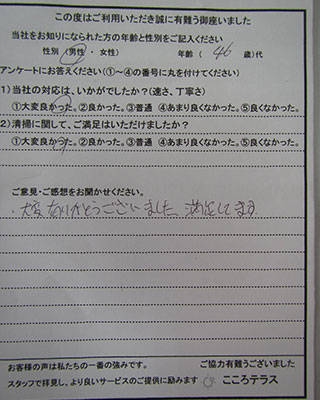 この度はご利用いただき誠に有難う御座いました
当社をお知りになられた方の年齢と性別をご記入ください
性別 (男性 ・ 女性) 年齢 ( 46 歳)代
アンケートにお答えください(①～④の番号に丸を付けてください)
1)当社の対応は、いかがでしたか?(速さ、丁寧さ)
①大変良かった。②良かった。③普通 ④あまり良くなかった。⑤良くなかった。
2)清掃に関して、ご満足はいただけましたか?
①大変良かった。②良かった。③普通 ④あまり良くなかった。⑤良くなかった。
ご意見・ご感想をお聞かせください。
・大変ありがとうございました。満足してます
お客様の声は私たちの一番の強みです。 ご協力有難うございました
スタッフで拝見し、より良いサービスのご提供に励みます こころテラス